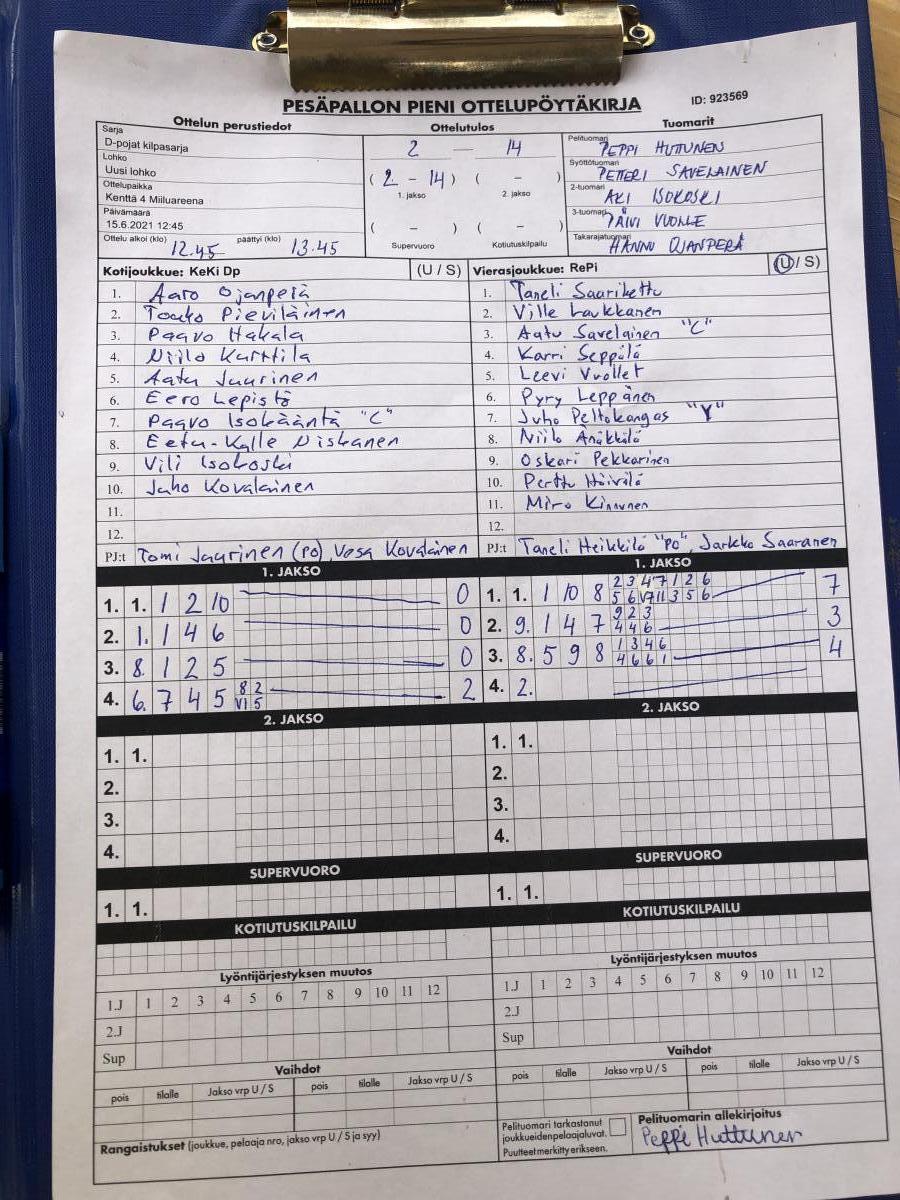 PESÄPALLON PIENI OTTELUPÖYTÄKIRJA
ID: 923569
Ottelun perustiedot
Sarja
D-pojat kilpasarja
Lohko
Uusi lohko
Ottelupaikka
Kenttä 4 Miiluareena
Päivämäärä
15.6.2021 12:45
Ottelu alkoi (klo) 12.45 päättyi (klo) 13.45
Ottelutulos
2 — 14
( 2 - 14 ) ( - )
1. jakso 2. jakso
( - ) ( - )
Supervuoro Kotiutuskilpailu
Tuomarit
Pelituomari PEPPI HUTTUNEN
Syöttötuomari PETTERI SAVELAINEN
2-tuomari AKI ISOKOSKI
3-tuomari PÄIVI VUOLLE
Takarajatuomari HANNU OJANPERÄ
Kotijoukkue: KeKi Dp (U / S)
1. Aaro Ojanperä
2. Touko Pieviläinen
3. Paavo Hakala
4. Niilo Karttila
5. Aatu Jaurinen
6. Eero Lepistö
7. Paavo Isokääntä "C"
8. Eetu-Kalle Niskanen
9. Vili Isokoski
10. Juho Kovalainen
11.
12.
PJ:t Tomi Jaurinen (PO), Vesa Kovalainen
Vierasjoukkue: RePi (U / S)
1. Taneli Saarikettu
2. Ville Laukkanen
3. Aatu Savelainen "C"
4. Karri Seppälä
5. Leevi Vuollet
6. Pyry Leppänen
7. Juho Peltokangas "Y"
8. Niilo Änäkkälä
9. Oskari Pekkarinen
10. Perttu Hoivilä
11. Miro Kinnunen
12.
PJ:t Taneli Heikkilä "PO", Jarkko Saaranen
1. JAKSO
1. 1. 1 2 10 0
2. 1. 1 4 6 0
3. 8. 1 2 5 0
4. 6. 7 4 5 8 2 2
VI 5
1. JAKSO
1. 1. 1 10 8 2 3 4 7 1 2 6 7
5 6 VI 7 11 3 5 6
2. 9. 1 4 7 9 2 3 3
4 4 6
3. 8. 5 9 8 1 3 4 6 4
4 6 6 1
4. 2.
2. JAKSO
1. 1.
2.
3.
4.
2. JAKSO
1. 1.
2.
3.
4.
SUPERVUORO
1. 1.
SUPERVUORO
1. 1.
KOTIUTUSKILPAILU
KOTIUTUSKILPAILU
Lyöntijärjestyksen muutos
1.J 1 2 3 4 5 6 7 8 9 10 11 12
2.J
Sup
Lyöntijärjestyksen muutos
1.J 1 2 3 4 5 6 7 8 9 10 11 12
2.J
Sup
Vaihdot
pois tilalle Jakso vrp U / S pois tilalle Jakso vrp U / S
Vaihdot
pois tilalle Jakso vrp U / S pois tilalle Jakso vrp U / S
Rangaistukset (joukkue, pelaaja nro, jakso vrp U / S ja syy)
Pelituomari tarkastanut
joukkueiden pelaajaluvat.
Puutteet merkitty erikseen.
Pelituomarin allekirjoitus
Peppi Huttunen